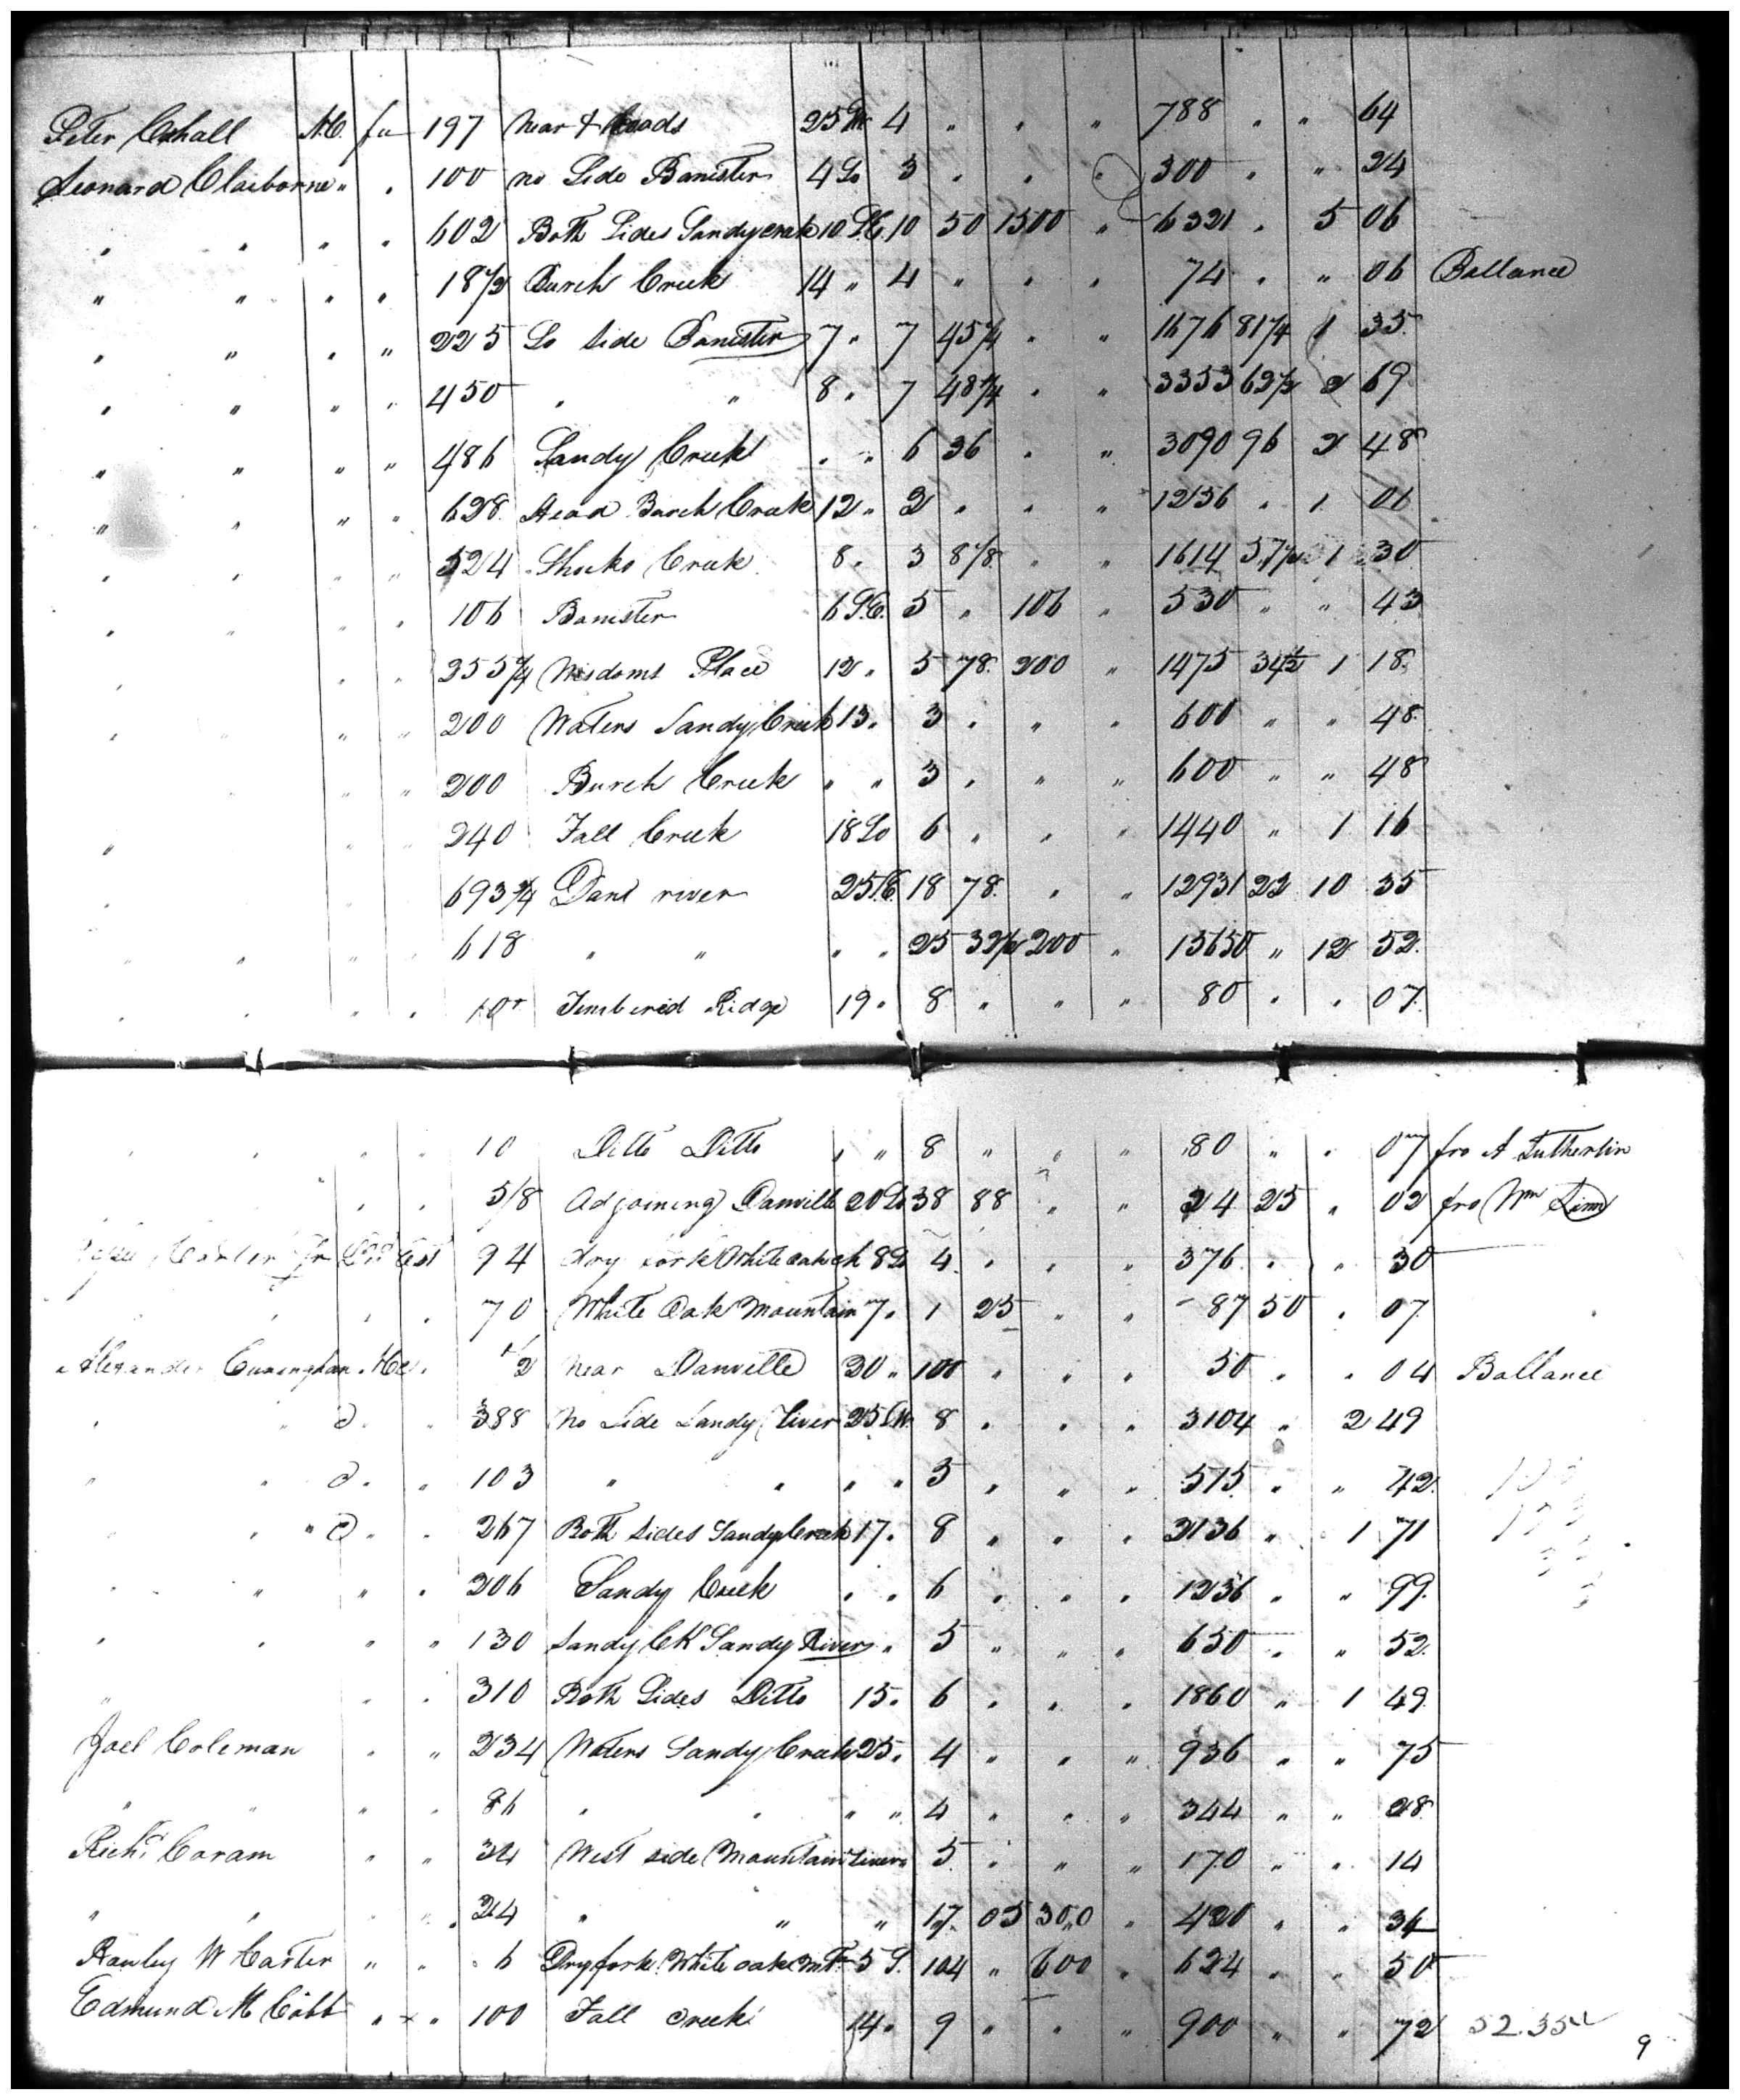 Peter Cahall M.C. fu 197 near + Roads 25 W 4 " " " 788 " " 64
Leonard Claiborne " " 100 no Side Banister 4 So 3 " " " 300 " " 24
" " " " 602 Both Sides Sandy creek 10 S.E. 10 50 1500 " 6321 " 5 06
" " " " 18 1/2 Burch Creek 14 " 4 " " " 74 " " 06 Ballance
" " " " 225 So Side Banister 7 " 7 45 1/4 " " 1676 81 1/4 1 35
" " " " 450 " " 8 " 7 45 1/4 " " 3353 62 1/2 2 69
" " " " 486 Sandy Creek " " 6 36 " " 3090 96 2 48
" " " " 628 Head Burch Creek 12 " 2 " " " 1256 " 1 01
" " " " 524 Shoko Creek 8 " 3 8 1/8 " " 1614 57 1/2 1 30
" " " " 106 Banister 6 S.E. 5 " 106 " 530 " " 43
" " " 255 1/4 Wisdoms Place 12 " 5 78 200 " 1475 34 1/2 1 18
" " " 200 Waters Sandy Creek 13 " 3 " " " 600 " " 48
" " 200 Burch Creek " " 3 " " " 600 " " 48
" " " 240 Fall Creek 18 So 6 " " " 1440 " 1 16
" " 693 3/4 Dans river 25 S.E. 18 78 " " 12931 22 10 35
" " " " 618 " " " " 25 32 1/2 200 " 15650 " 12 52
" " " " 10 Timbered Ridge 19 " 8 " " " 80 " " 07
" " " " 10 Ditto Ditto " " 8 " " " 80 " " 07 fro A Sutherlin
" " 5/8 Adjoining Danville 20 So 38 88 " " 24 25 " 02 fro Wm Linn
Carter Jr Est 94 dry fork White oak ck 8 So 4 " " " 376 " " 30
" " 70 White Oak Mountain 7 " 1 25 " " 87 50 " 07
Alexander Cuningham " 1/2 near Danville 30 " 100 " " " 50 " " 04 Ballance
" " " " 388 no Side Sandy River 25 W. 8 " " " 3104 " 2 49
" " " " 103 " " " " 5 " " " 515 " " 42
" " " " 267 Both Sides Sandy Creek 17 " 8 " " " 2136 " 1 71
" " " " 206 Sandy Creek " " 6 " " " 1236 " " 99
" " " " 130 Sandy Ck Sandy River " 5 " " " 650 " " 52
" " " 310 Both Sides Ditto 15 " 6 " " " 1860 " 1 49
Joel Coleman " " 234 Waters Sandy Creek 25 " 4 " " " 936 " " 75
" " " " 86 " " " " 4 " " " 344 " " 28
Richd Coram " " 34 West side Mountain " 5 " " " 170 " " 14
" " " " 24 " " " 17 05 300 " 420 " " 34
Rawley W Carter " " 6 Dry fork White oak Mt 5 S. 104 " 600 " 624 " " 50
Edmund M Cobb " x " 100 Fall Creek 14 " 9 " " " 900 " " 72 52.35
9